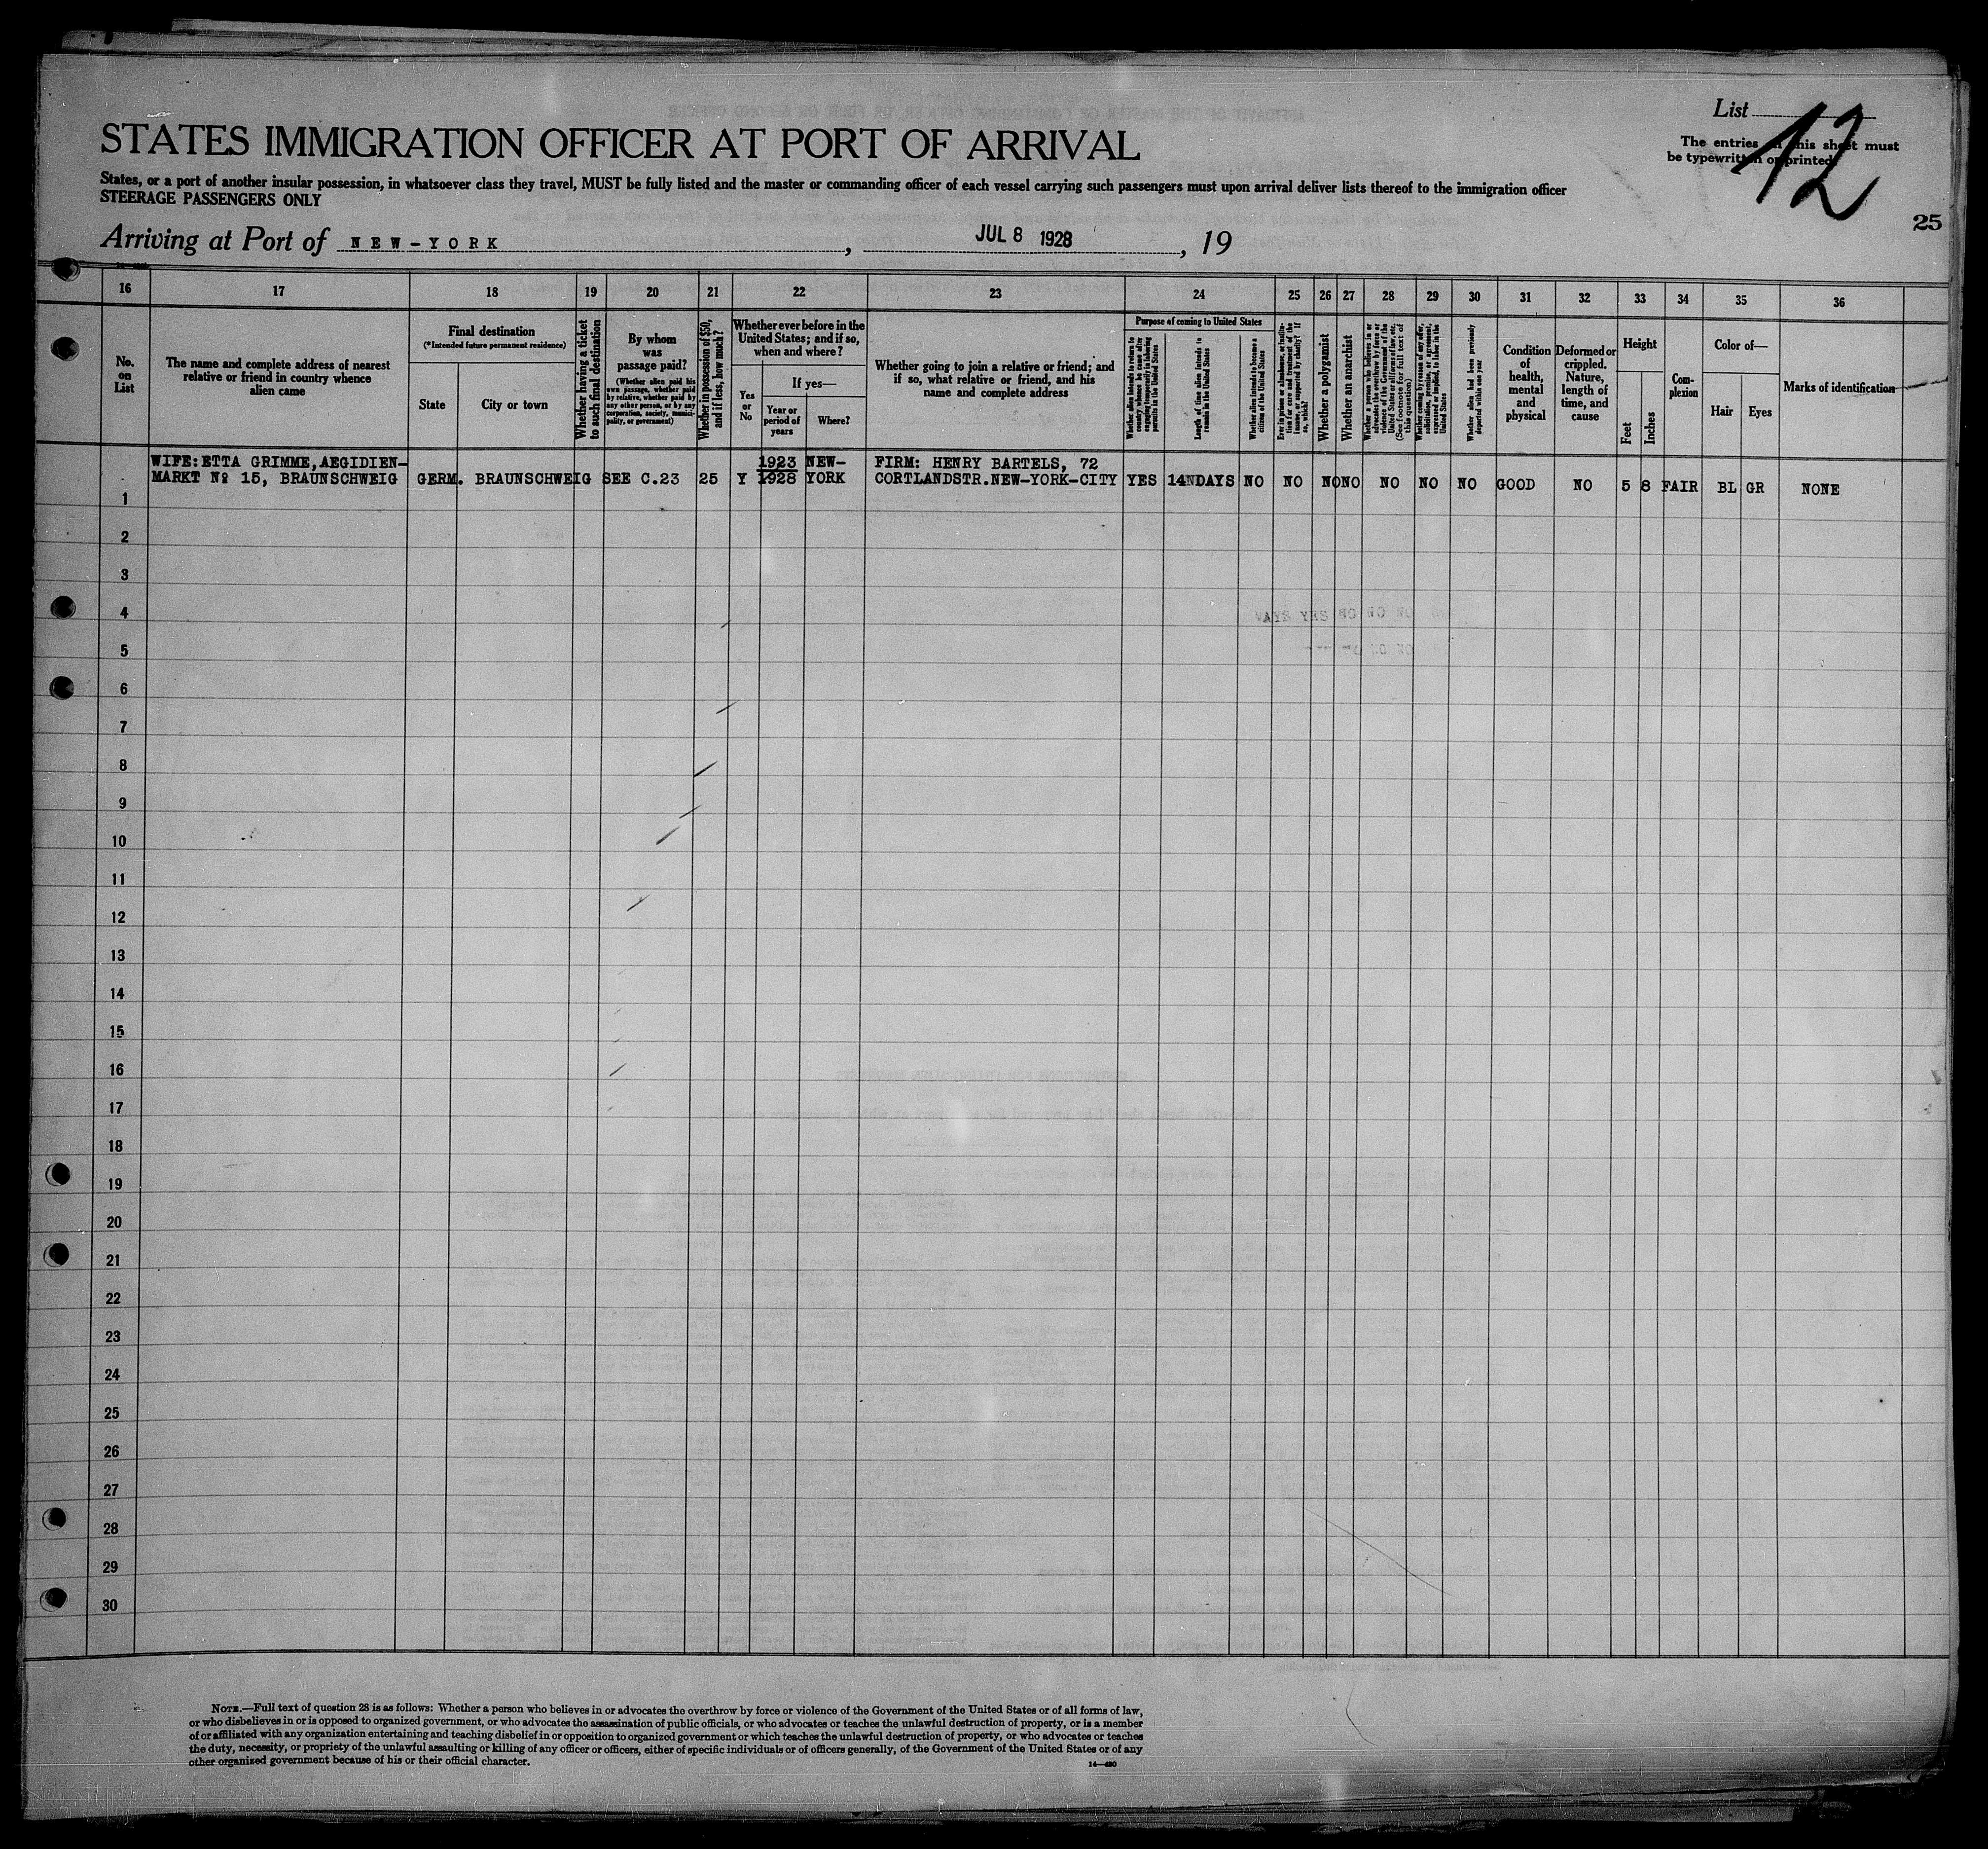 List 12
The entries on this sheet must
be typewritten or printed.
STATES IMMIGRATION OFFICER AT PORT OF ARRIVAL
States, or a port of another insular possession, in whatsoever class they travel, MUST be fully listed and the master or commanding officer of each vessel carrying such passengers must upon arrival deliver lists thereof to the immigration officer
STEERAGE PASSENGERS ONLY
25
Arriving at Port of NEW-YORK, JUL 8 1928, 19
16 17 18 19 20 21 22 23 24 25 26 27 28 29 30 31 32 33 34 35 36
No.
on
List
The name and complete address of nearest
relative or friend in country whence
alien came
Final destination
(*Intended future permanent residence)
State
City or town
Whether having a ticket
to such final destination
By whom
was
passage paid?
(Whether alien paid his
own passage, whether paid
by relative, whether paid by
any other person, or by any
corporation, society, munici-
pality, or government)
Whether in possession of $50,
and if less, how much?
Whether ever before in the
United States; and if so,
when and where?
Yes
or
No
If yes—
Year or
period of
years
Where?
Whether going to join a relative or friend; and
if so, what relative or friend, and his
name and complete address
Purpose of coming to United States
Whether alien intends to return to
country whence he came after
engaging temporarily in laboring
pursuits in the United States
Length of time alien intends to
remain in the United States
Whether alien intends to become a
citizen of the United States
Ever in prison or almshouse, or institu-
tion for care and treatment of the
insane, or supported by charity? If
so, which?
Whether a polygamist
Whether an anarchist
Whether a person who believes in or
advocates the overthrow by force or
violence of the Government of the
United States or all forms of law, etc.
(See footnote for full text of
this question)
Whether coming by reason of any offer,
solicitation, promise, or agreement,
expressed or implied, to labor in the
United States
Whether alien had been previously
deported within one year
Condition
of
health,
mental
and
physical
Deformed or
crippled.
Nature,
length of
time, and
cause
Height
Feet
Inches
Com-
plexion
Color of—
Hair
Eyes
Marks of identification
WIFE: ETTA GRIMME, AEGIDIEN- 1923 NEW- FIRM: HENRY BARTELS, 72
MARKT Nº 15, BRAUNSCHWEIG GERM. BRAUNSCHWEIG SEE C.23 25 Y 1928 YORK CORTLANDSTR.NEW-YORK-CITY YES 14 DAYS NO NO NO NO NO NO NO GOOD NO 5 8 FAIR BL GR NONE
1
2
3
4
5
6
7
8
9
10
11
12
13
14
15
16
17
18
19
20
21
22
23
24
25
26
27
28
29
30
NOTE.—Full text of question 28 is as follows: Whether a person who believes in or advocates the overthrow by force or violence of the Government of the United States or of all forms of law,
or who disbelieves in or is opposed to organized government, or who advocates the assassination of public officials, or who advocates or teaches the unlawful destruction of property, or is a member
of or affiliated with any organization entertaining and teaching disbelief in or opposition to organized government or which teaches the unlawful destruction of property, or who advocates or teaches
the duty, necessity, or propriety of the unlawful assaulting or killing of any officer or officers, either of specific individuals or of officers generally, of the Government of the United States or of any
other organized government because of his or their official character.